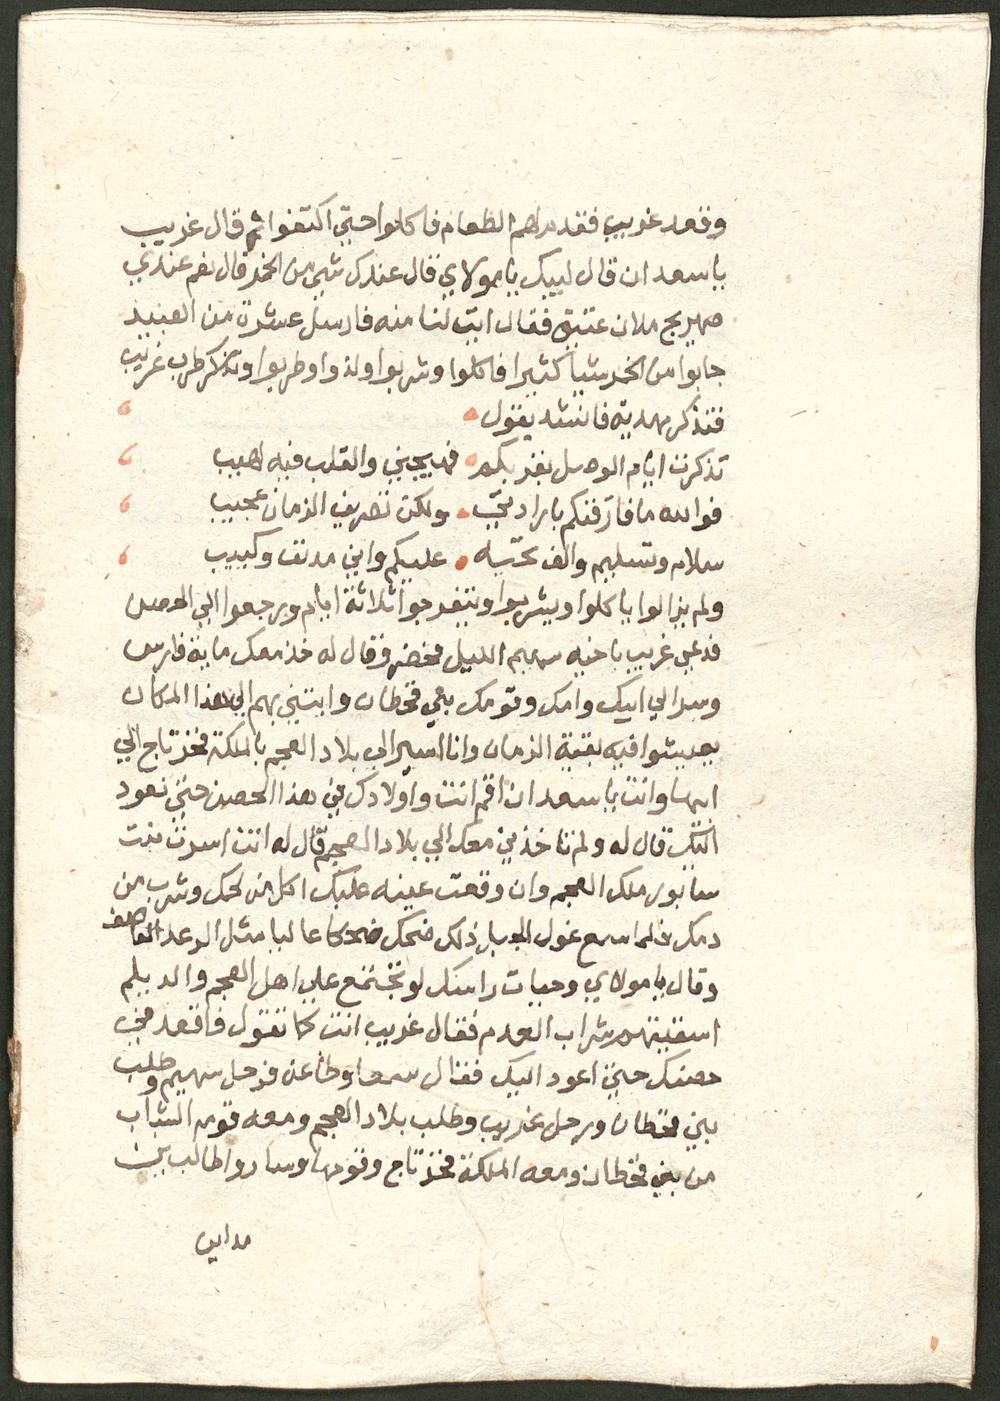 وقعد غريب فقدم لهم الطعام فاكلوا حتي اكتفوا ثم قال غريب
يا سعدان قال لبيك يا مولاي قال عندك شي من الخمر قال نعم عندي
صهريج ملان عتيق فقال ايت لنا منه فارسل عشرة من العبيد
جابوا من الخمر شيا كثيرا فاكلوا وشربوا ولذوا وطربوا وتذكر طرب غريب
فتذكر مهدية فانشد يقول
تذكرت ايام الوصل بقربكم فهيجني والقلب فيه لهيب
فوالله ما فارقتكم بارادتي ولكن تصريف الزمان عجيب
سلام وتسليم والف تحية عليكم واني مدنف وكييب
ولم يزالوا ياكلوا ويشربوا ويتفرجوا ثلاثة ايام ورجعوا الي الحصن
فدعي غريب باخيه سهيم الليل فحضر فقال له خذ معك ماية فارس
وسر الي ابيك وامك وقومك بني قحطان واتيني بهم الي هذا المكان
يعيشوا فيه بقية الزمان وانا اسير الي بلاد العجم بالملكة فخر تاج الي
ابيها وانت يا سعدان اقم انت واولادك في هذا الحصن حتي نعود
اليك قال له ولم تاخذني معك الي بلاد العجم قال له انت اسرت بنت
سابور ملك العجم وان وقعت عينه عليك اكل من لحمك وشرب من
دمك فلما سمع غول الجبل ذلك ضحك ضحكا عاليا مثل الرعد القاصف
وقال يا مولاي وحيات راسك لو تجتمع علي اهل العجم والديلم
اسقيتهم شراب العدم فقال غريب انت كما تقول فاقعد في
حصنك حتي اعود اليك فقال سمعا وطاعة فرحل سهيم وطلب
بني قحطان ورحل غريب وطلب بلاد العجم ومعه قومه الشباب
من بني قحطان ومعه الملكة فخر تاج وقومها وساروا طالبين
مداين